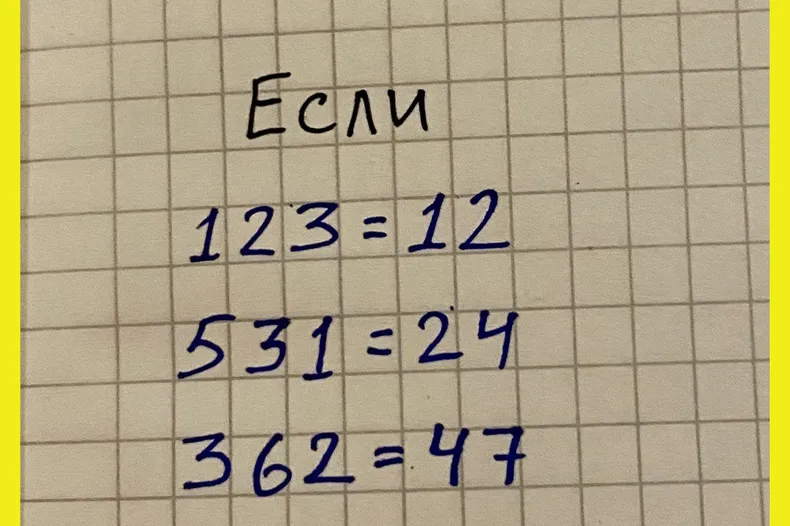 Если
123=12
531=24
362=47